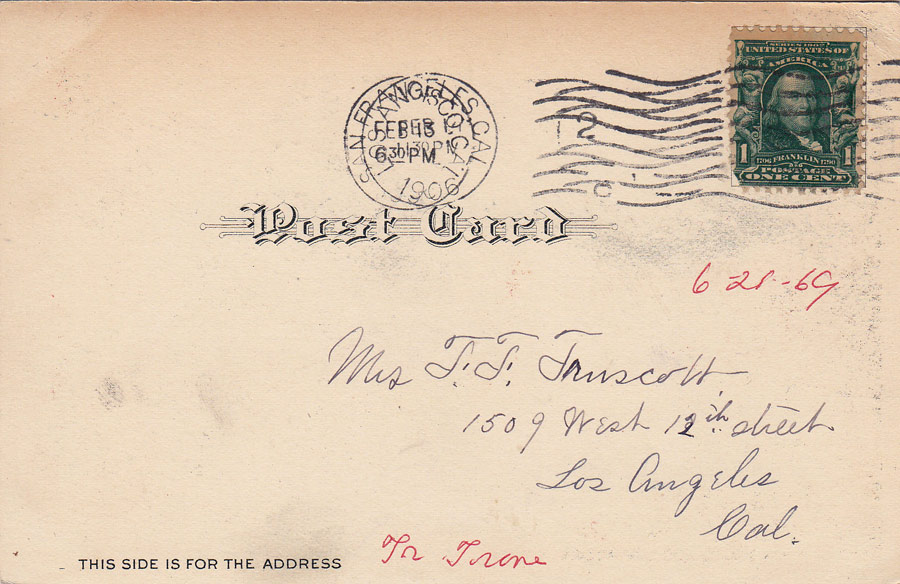 SERIES 1902
UNITED STATES OF
AMERICA
1 1706 FRANKLIN 1790 1
POSTAGE
ONE CENT
SAN FRANCISCO, CAL.
LOS ANGELES, CAL.
FEB 13
6 30 PM
1906
2
C
Post Card
6-21-69
Mrs T. F. Truscott
1509 West 12th street
Los Angeles
Cal.
THIS SIDE IS FOR THE ADDRESS
Tr Trone